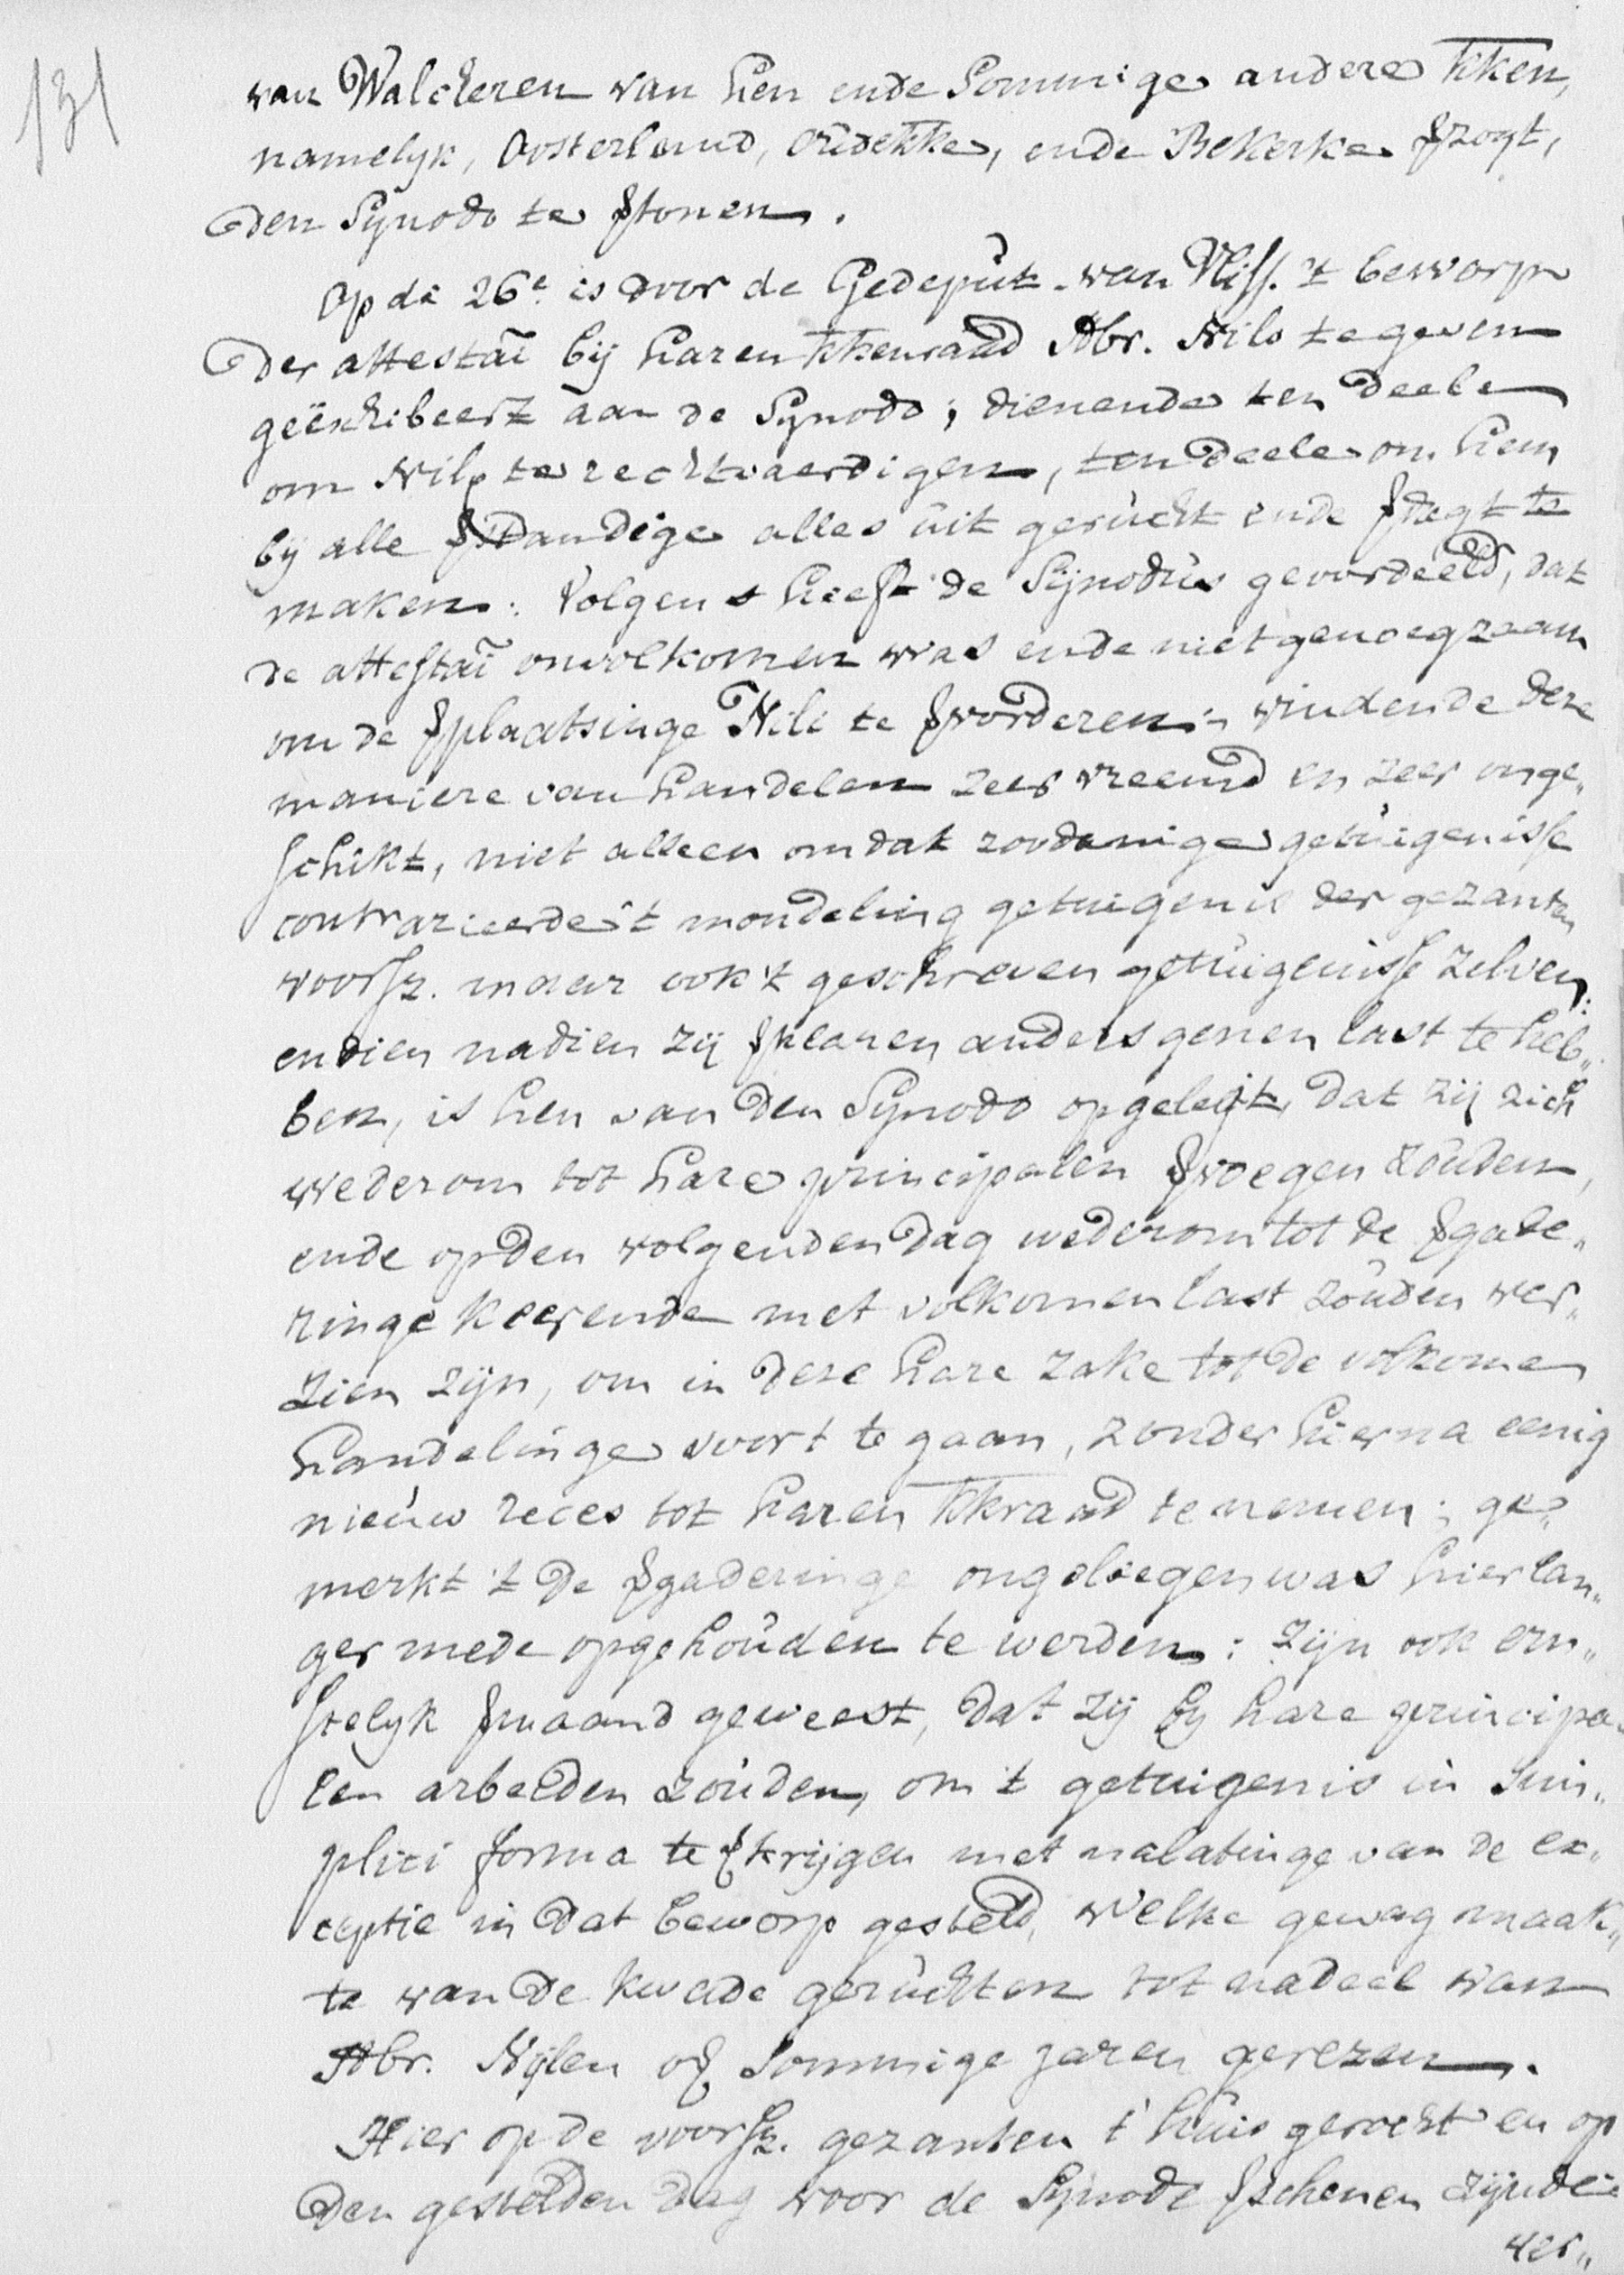 131
van Walcheren van hen ende sommige andere kken,
namelyk, Oosterland, Oudekke, ende Bekerke ꝟzogt,
den Synodo te ꝟtonen.
Op de 26e is door de Gedeput. van Vliss. 't beworp
der attestaī bij haren kkenraad Abr. Nilo te geven
geëxhibeert aan de Synodo; dienende ten deele
om Nilo te rechtvaerdigen, ten deele om hem
bij alle ꝟstandige alles uit gerucht ende ꝟdagt te
maken. Volgens heeft de Synodus geoordeeld, dat
de attestaī onvolkomen was ende niet genoegzaam
om de ꝟplaatsinge Nili te ꝟvorderen; vindende deze
maniere van handelen zeer vreemd en zeer onge„
schikt, niet alleen omdat zoodanige getuigenisse
contrarieerde 't mondeling getuigenis der gezanten
voorsz. maar ook 't geschreven getuigenisse zelven:
en dien nadien zij ꝟklaren anders genen last te heb„
ben, is hen van den Synodo opgelegt, dat zij zich
wederom tot hare principalen ꝟvoegen zouden,
ende op den volgenden dag wederom tot de ꝟgade„
ringe keerende met volkomen last zouden ver„
zien zijn, om in deze hare zake tot de volkomen
handelinge voort te gaan, zonder hierna eenig
nieuw reces tot haren kkraad te nemen; ge„
merkt 't de ꝟgaderinge ongelegen was hier lan„
ger mede opgehouden te werden: zijn ook ern„
stelyk ꝟmaand geweest, dat zij by hare principa„
len arbeiden zouden, om 't getuigenis in sim„
plici forma te ꝟkrijgen met nalatinge van de ex„
ceptie in dat beworp gesteld, welke gewag maak„
te van de kwade geruchten tot nadeel van
Abr. Nijlen oꝟ sommige jaren gerezen.
Hier op de voorsz. gezanten t'huis gerockt en op
den gestelden dag voor de Synode ꝟschenen zijnde
ver„